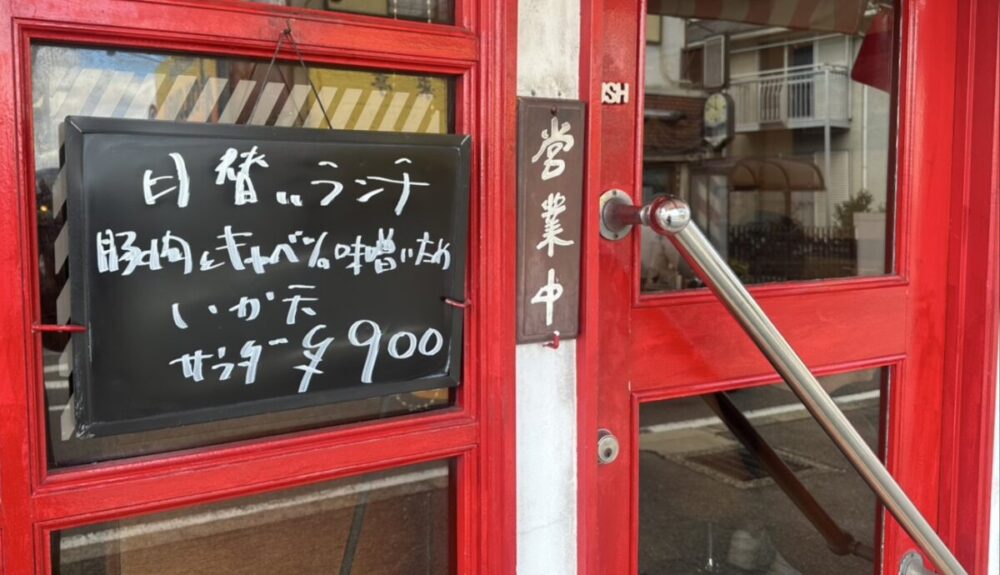 日替いランチ
豚肉とキャベツの味噌いため
いか天
サラダー ¥900
営業中
SH